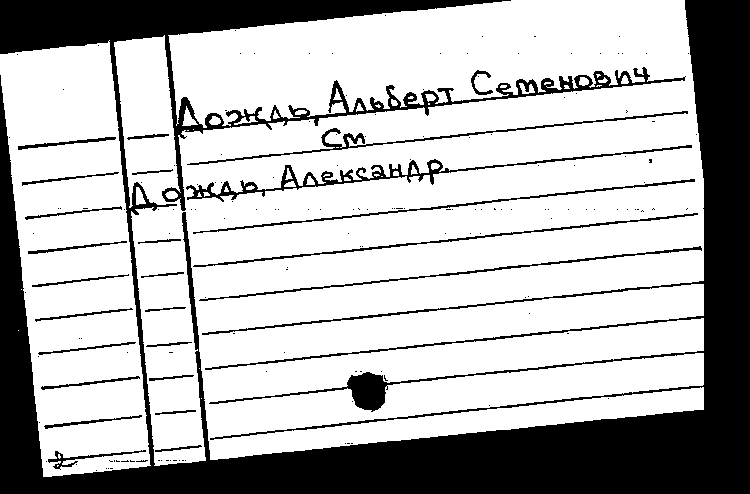 Дождь, Альберт Семенович
См
Дождь, Александр.